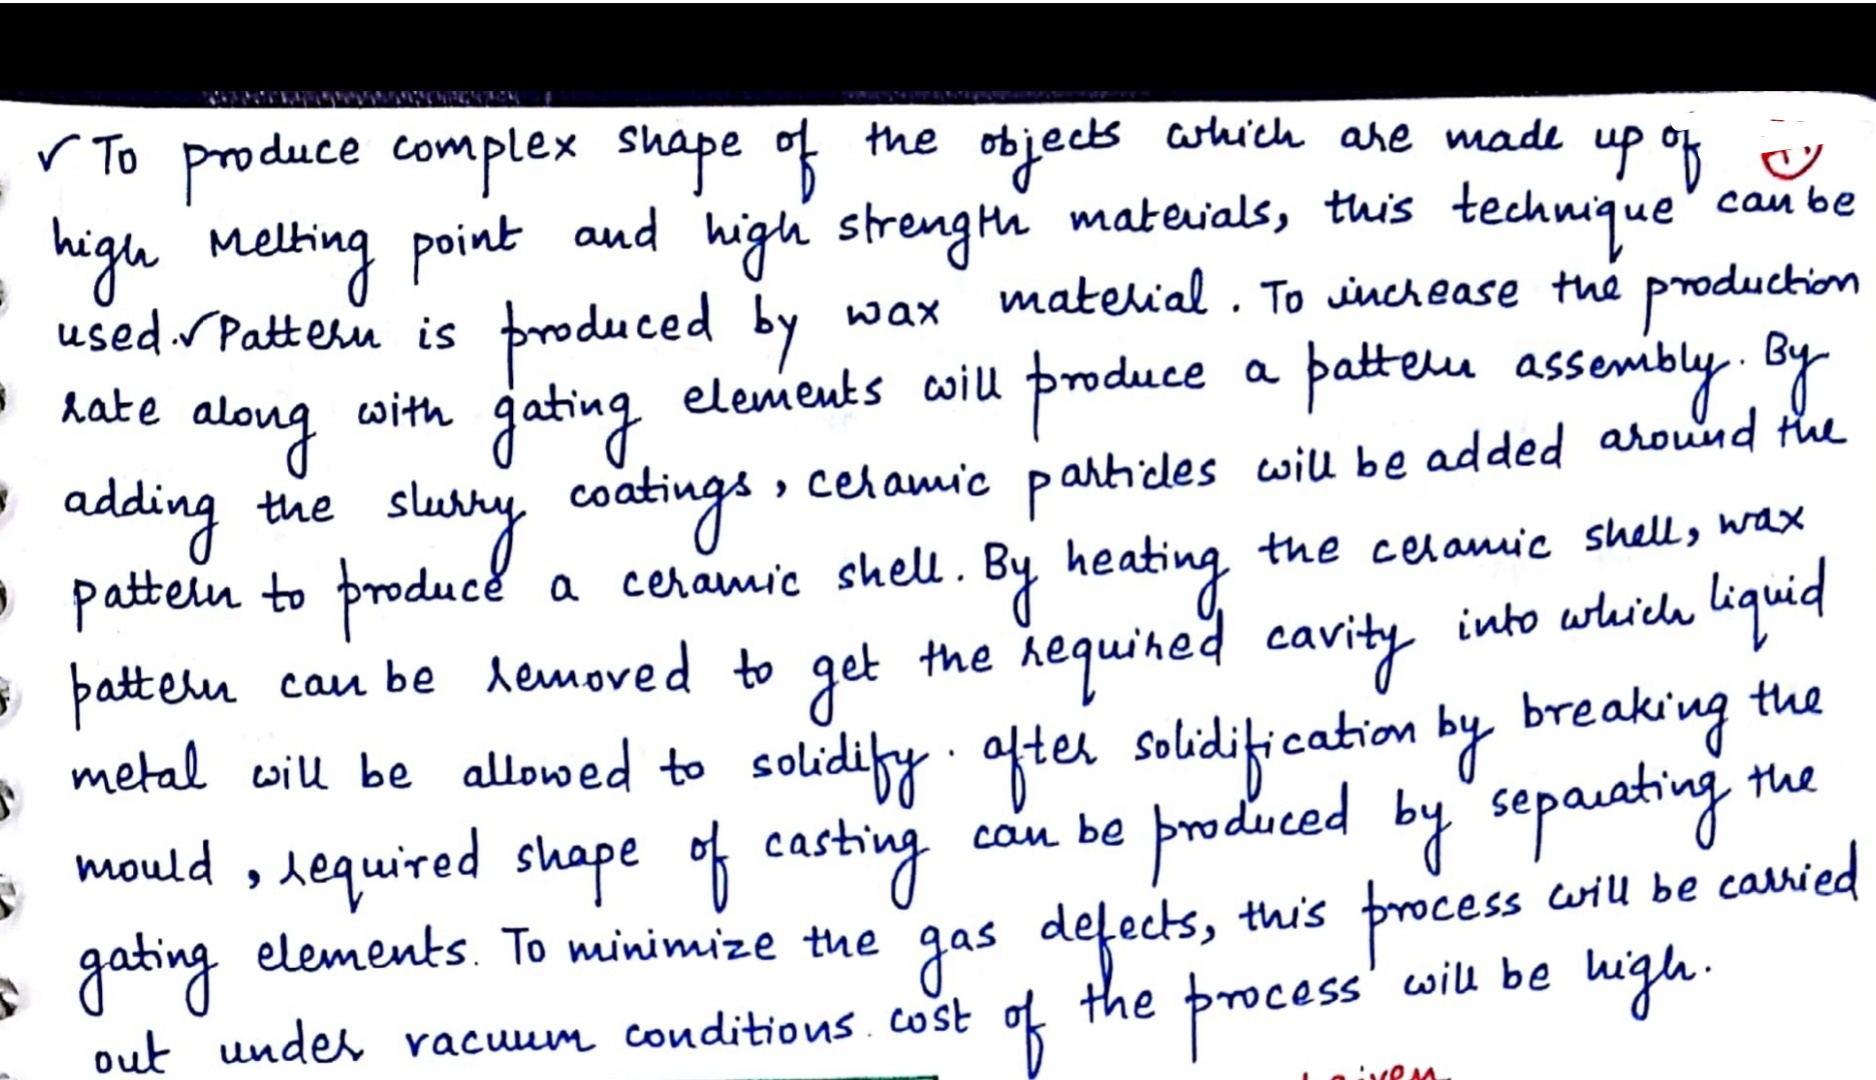 ✓ To produce complex shape of the objects which are made up of
high Melting point and high strength materials, this technique can be
used. ✓ Pattern is produced by wax material. To increase the production
rate along with gating elements will produce a pattern assembly. By
adding the slurry coatings, ceramic particles will be added around the
pattern to produce a ceramic shell. By heating the ceramic shell, wax
pattern can be removed to get the required cavity into which liquid
metal will be allowed to solidify. after solidification by breaking the
mould, required shape of casting can be produced by separating the
gating elements. To minimize the gas defects, this process will be carried
out under vacuum conditions. cost of the process will be high.